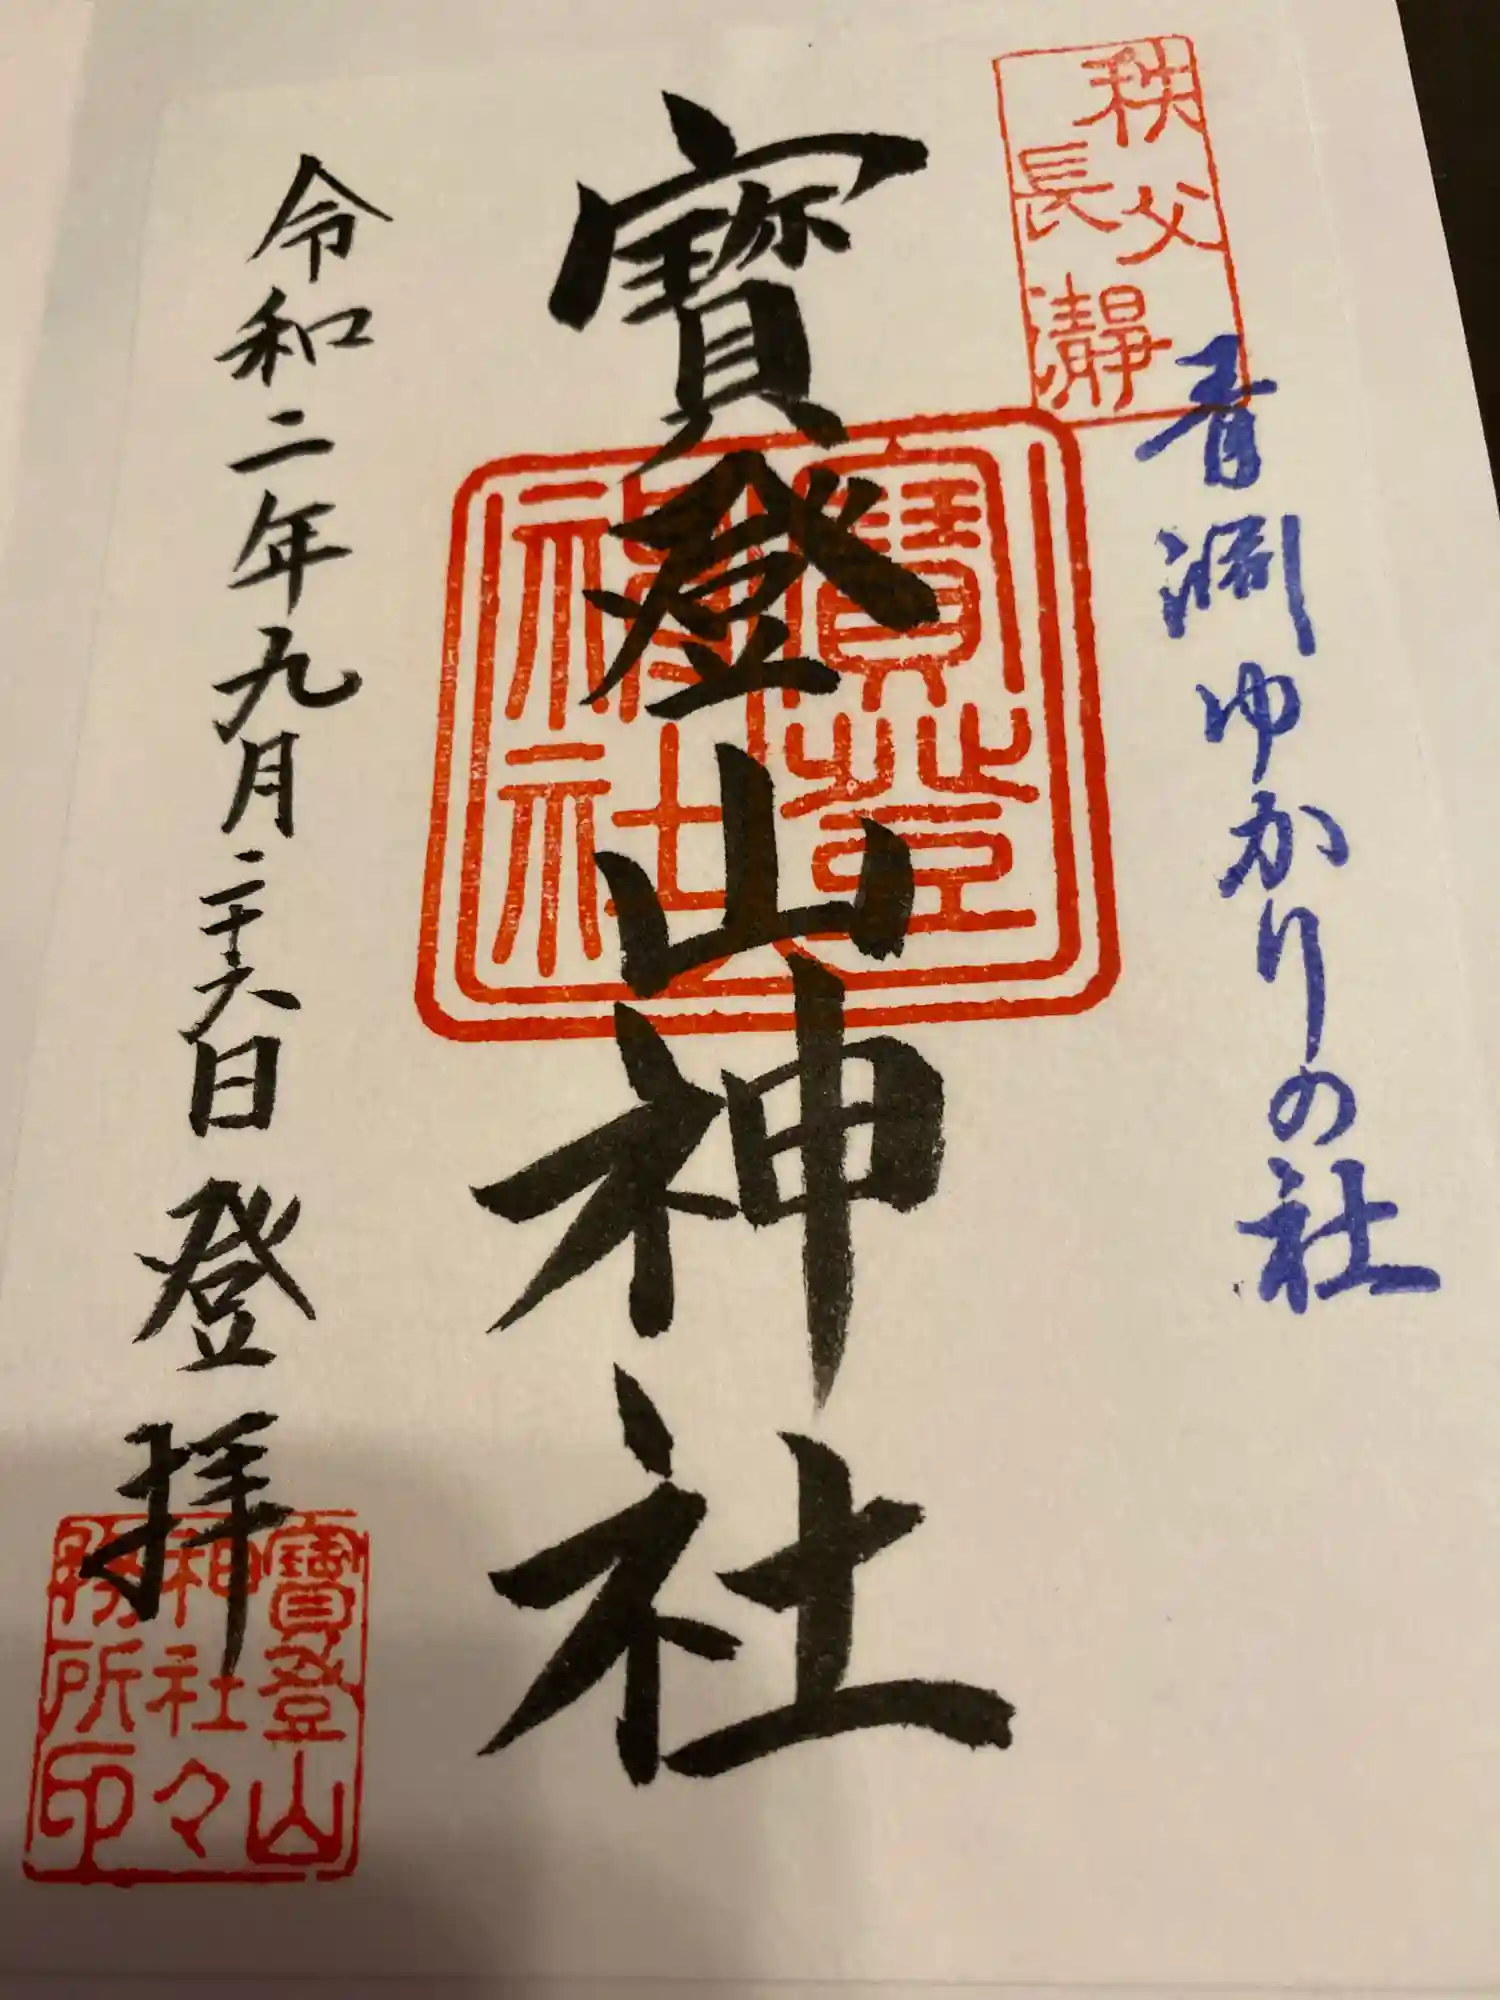 秩父
長瀞
青淵ゆかりの社
寶登山神社
寶登
神社
令和二年九月二十六日登拝
寶登山
神社々
務所印